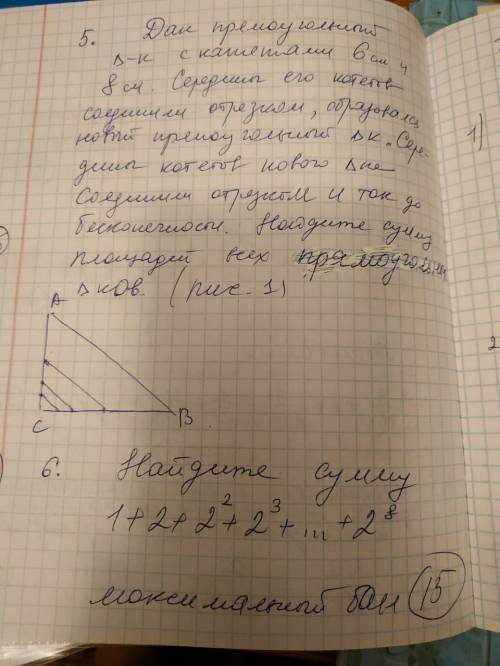 5. Дан прямоугольный
Δ-к с катетами 6 см и
8 см. Середины его катетов
соединили отрезком, образовался
новый прямоугольный Δк. Сере-
дины катетов нового Δка
соединили отрезком и так до
бесконечности. Найдите сумму
площадей всех прямоугольных
Δков. (рис. 1)
A
C
B
6. Найдите сумму
1+2+2²+2³+...+2⁸
максимальный балл 15
1)
2